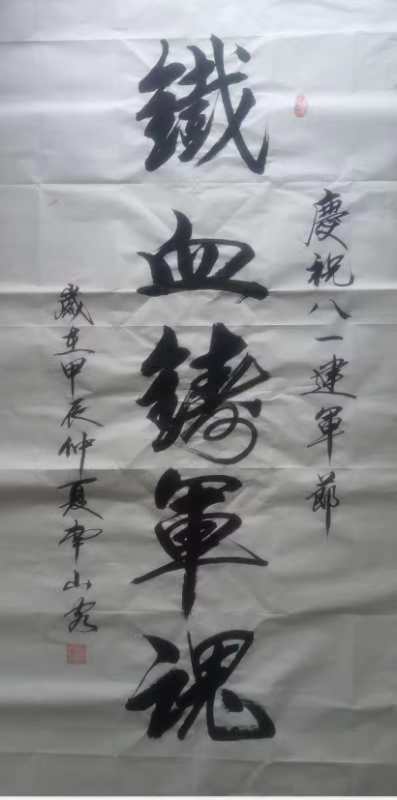 慶祝八一建軍節
鐵血鑄軍魂
歲在甲辰仲夏南山客